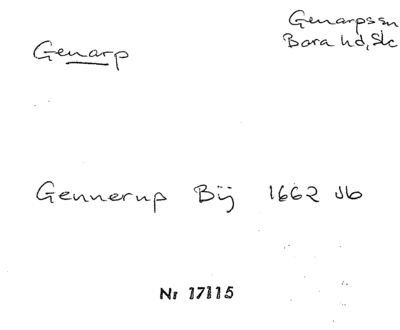 Genarp
Genarps sn
Bara hd, Sk
Gennerup Bij 1662 Jb
Nr 17115